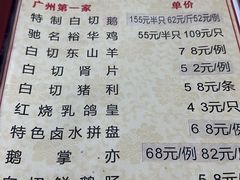 广州第一家 单价
特制白切鹅 155元/半只 62元/斤52元/例
驰名裕华鸡 55元/半只 109元/只
白切东山羊 78元/例
白切肾片 52元/例
白切猪利 58元/条
红烧乳鸽皇 43元/只
特色卤水拼盘 68元/例
鹅掌亦 68元/例 82元/